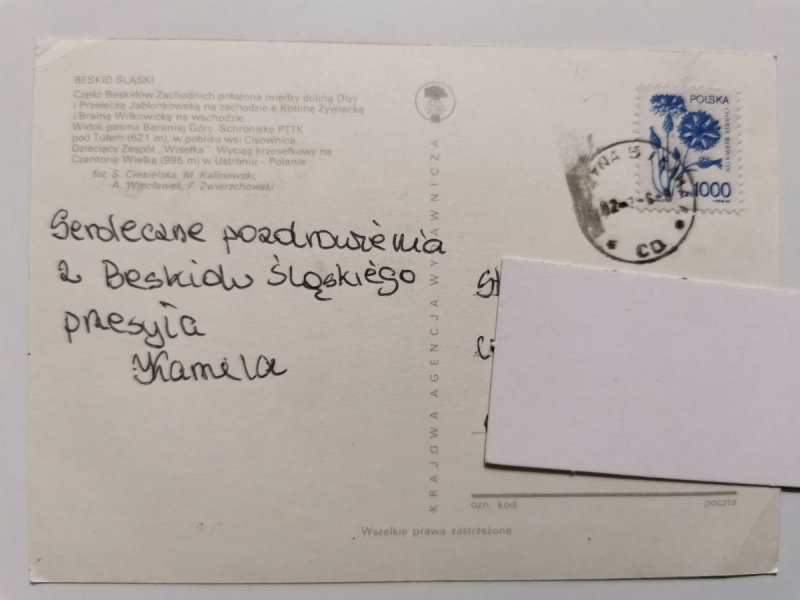 BESKID ŚLĄSKI
Część Beskidów Zachodnich położona między doliną Olzy
i Przełęczą Jabłonkowską na zachodzie a Kotliną Żywiecką
i Bramą Wilkowicką na wschodzie.
Widok pasma Baraniej Góry. Schronisko PTTK
pod Tułem (621 m), w pobliżu wsi Cisownica.
Dziecięcy Zespół „Wisełka". Wyciąg krzesełkowy na
Czantorię Wielką (995 m) w Ustroniu - Polanie
fot. S. Ciesielska, M. Kalinowski,
A. Więcławek, F. Zwierzchowski
Serdeczne pozdrowienia
z Beskidu Śląskiego
przesyła
Kamila
KRAJOWA AGENCJA WYDAWNICZA
POLSKA
CHABER BŁAWATEK
1000
CD
ozn. kod
poczta
Wszelkie prawa zastrzeżone